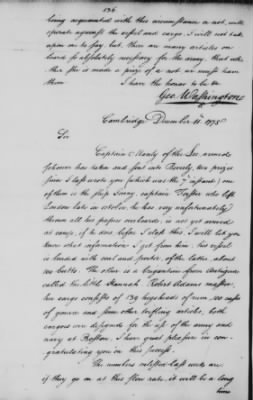 136
being acquainted with this circumstance or not, will
operate against the vessel and cargo. I will not take
upon me to say, but, there are many articles on
board so absolutely necessary for the army, that whe-
ther she is made a prize of or not we must have
them. I have the honor to be &c
Geo. Washington
Cambridge December 11th 1775
Sir
Captain Manly of the Lee armed
schooner has taken and sent into Beverly two prizes
since I last wrote you which was the 7th instant; one
of them is the ship Jenny, captain Foster who left
London late in october, he has very unfortunately
thrown all his papers overboard, is not yet arrived
at camp, if he does before I close this, I will let you
know what information I get from him; his vessel
is loaded with coal and porter, of the latter about
100 butts. The other is a brigantine from Antigua
called the little Hannah Robert Adams master,
her cargo consists of 139 hogsheads of rum, 100 cases
of geneva and some other trifling articles, both
cargoes are designed for the use of the army and
navy at Boston. I have great pleasure in con-
gratulating you on this success.
The numbers enlisted last week are
if they go on at this slow rate, it will be a long
time